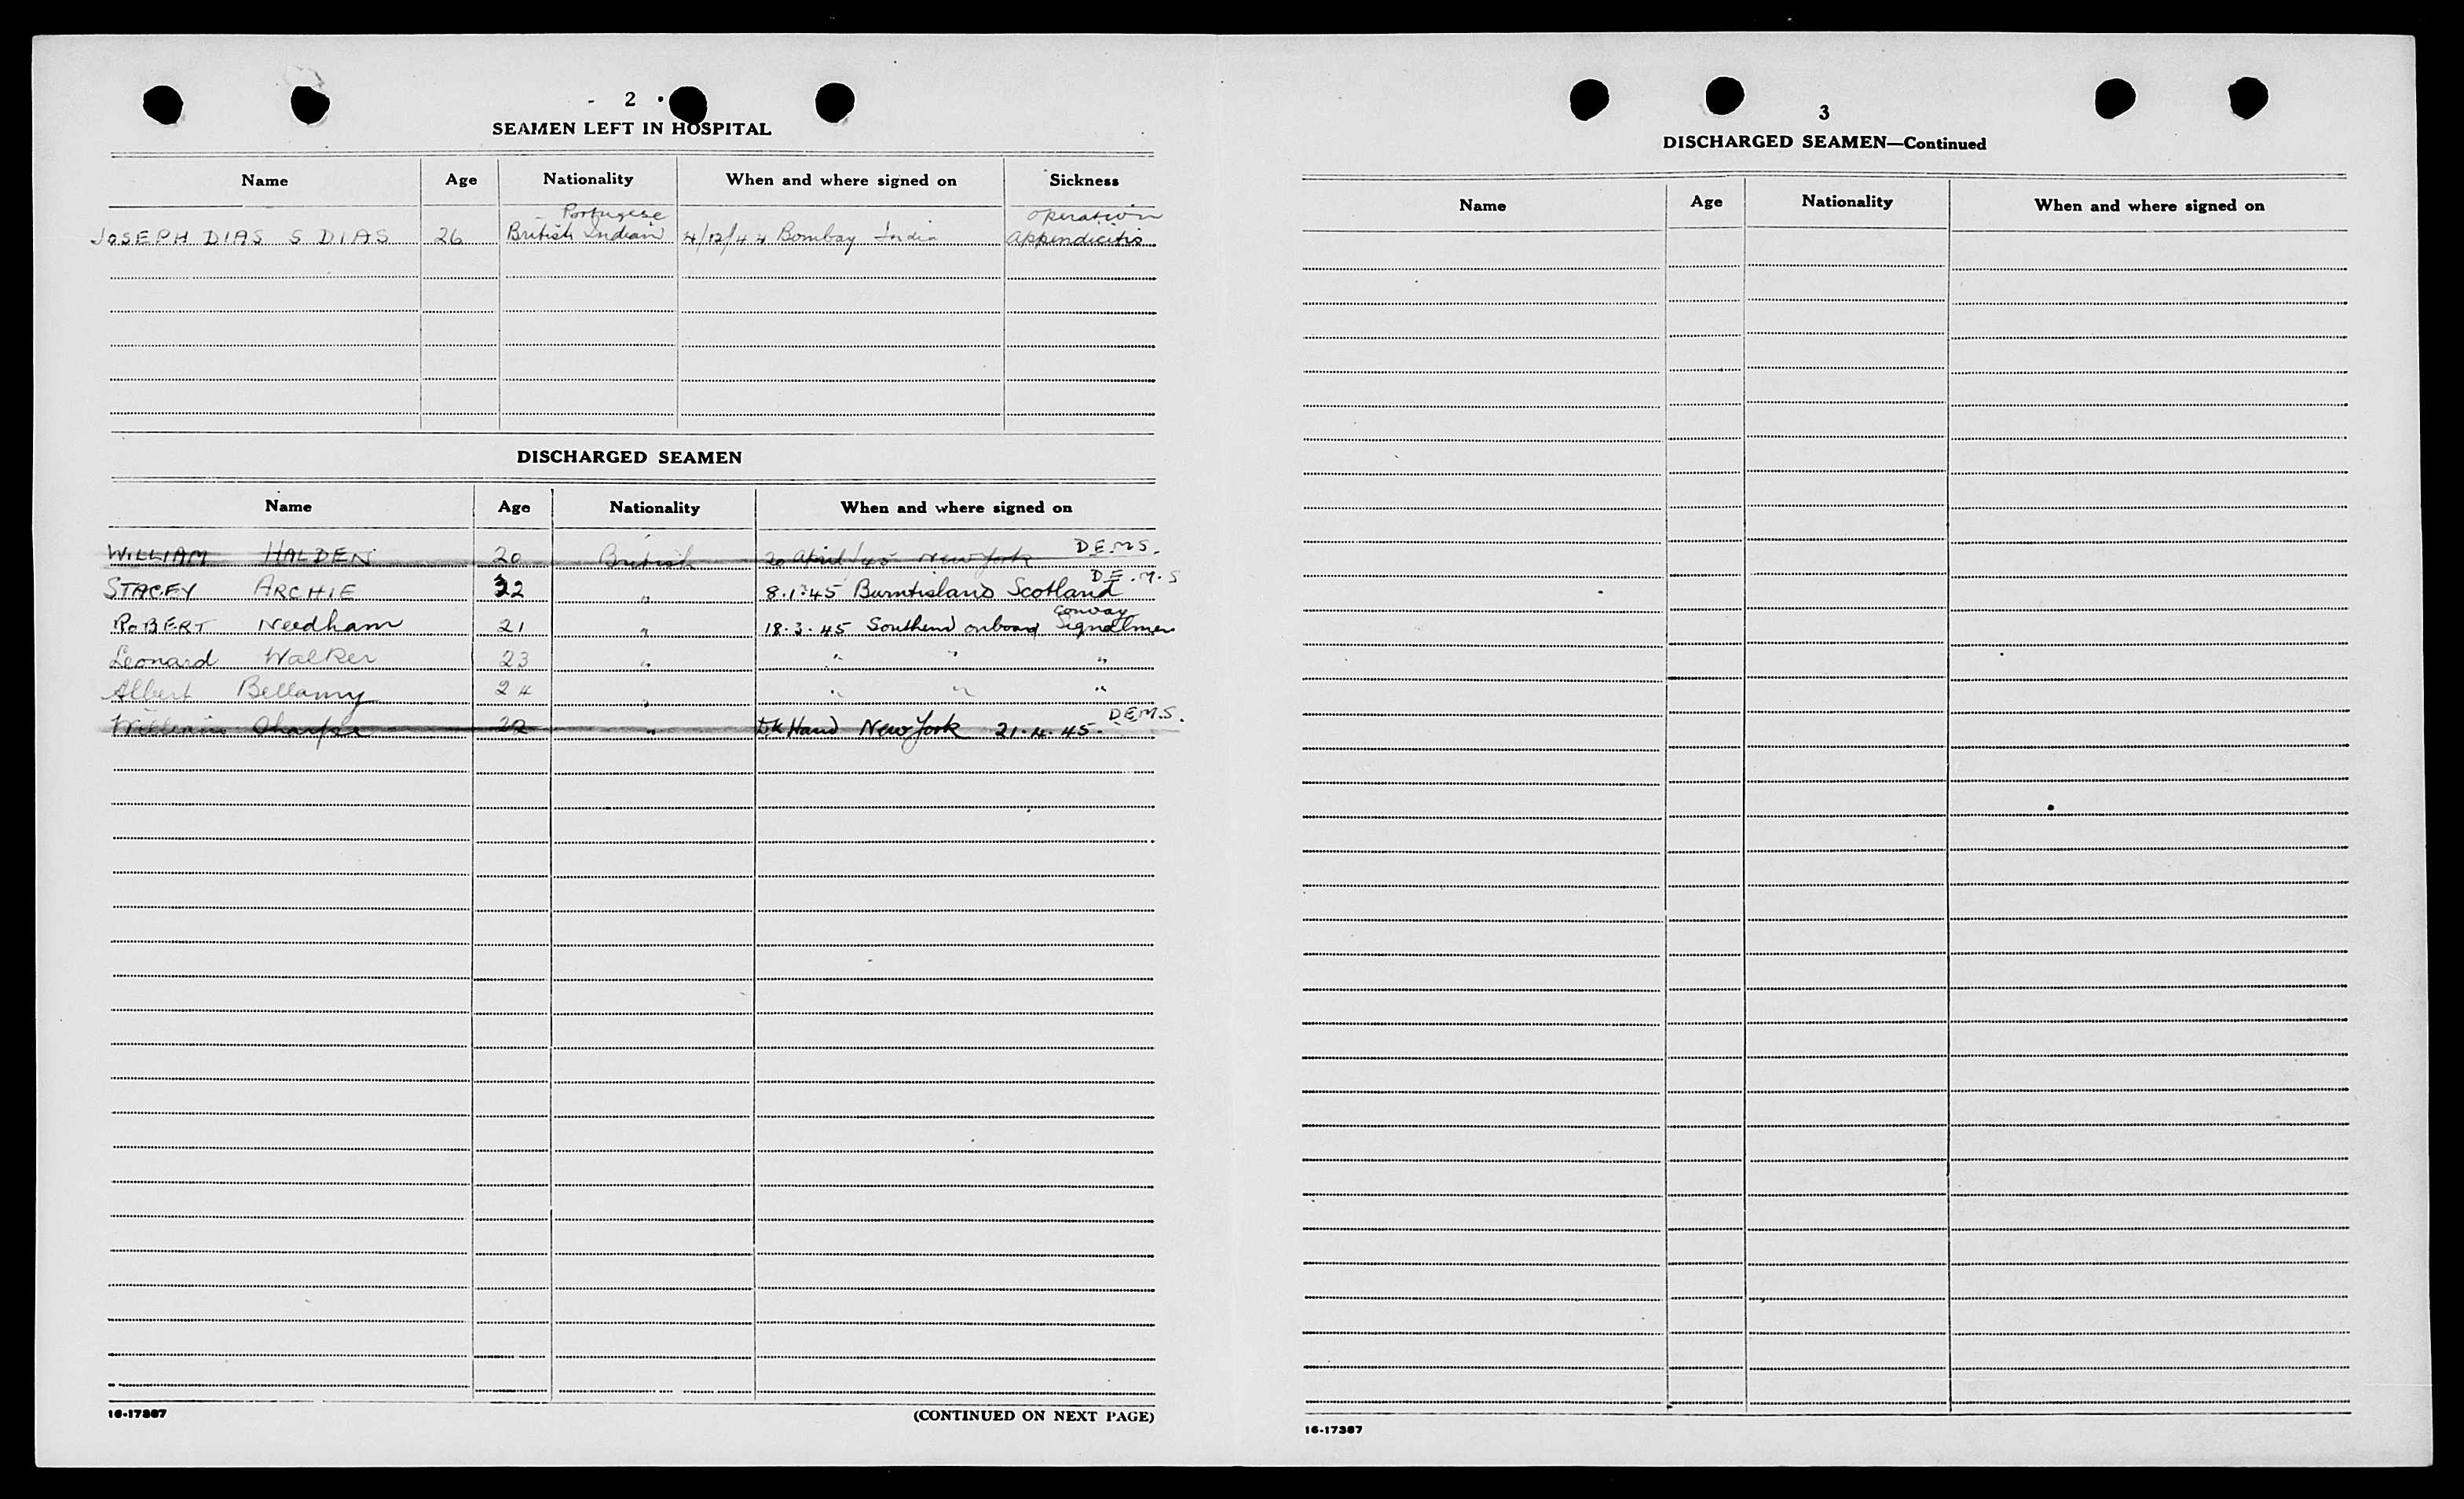 - 2 -
SEAMEN LEFT IN HOSPITAL
Name Age Nationality When and where signed on Sickness
Portugese operation
JOSEPH DIAS S DIAS 26 British Indian 4/12/44 Bombay India appendicitis
DISCHARGED SEAMEN
Name Age Nationality When and where signed on
WILLIAM HALDEN 20 British 20 April/45 New York D.E.M.S.
STACEY ARCHIE 22 " 8.1.45 Burntisland Scotland D.E.M.S
convoy
ROBERT Needham 21 " 18.3.45 Southend onboard Signalmen
Leonard Walker 23 " " " "
Albert Bellamy 24 " " " "
William Sharple 22 " Dk Hand New York 21.4.45. D.E.M.S.
16-17387 (CONTINUED ON NEXT PAGE)
3
DISCHARGED SEAMEN—Continued
Name Age Nationality When and where signed on
16-17387